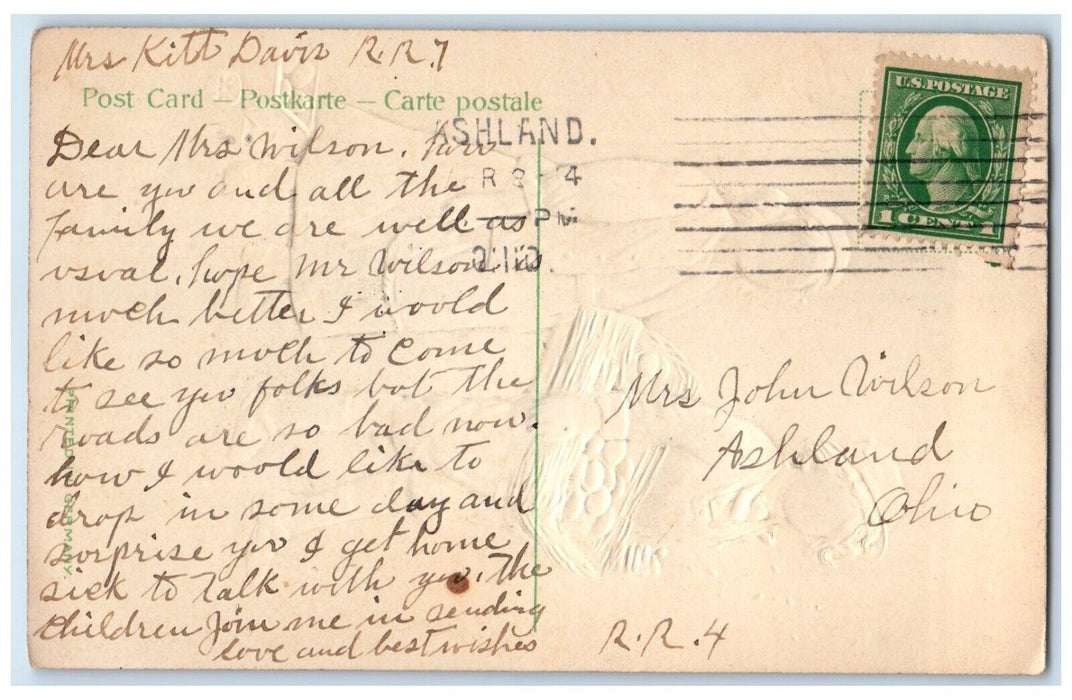 Mrs Kitt Davis R.R.7
Post Card – Postkarte – Carte postale
Dear Mrs Wilson, how
are you and all the
family we are well as
usual, hope Mr Wilson is
much better I would
like so much to come
to see you folks but the
roads are so bad now.
how I would like to
drop in some day and
surprise you I get home
sick to talk with you, the
children Join me in sending
love and best wishes
PRINTED GERMANY.
ASHLAND.
R 9 - 4
PM
OHIO.
U.S. POSTAGE
1 CENT 1
Mrs John Wilson
Ashland
Ohio
R.R.4